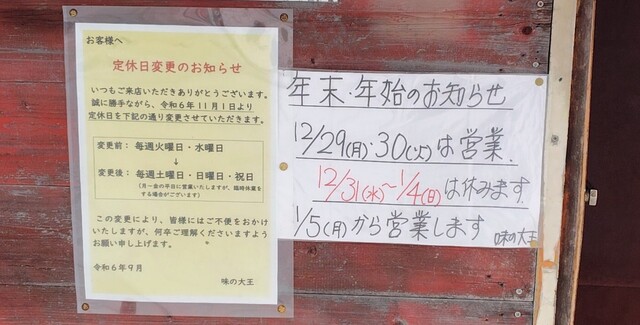 お客様へ
定休日変更のお知らせ
いつもご来店いただきありがとうございます。
誠に勝手ながら、令和6年11月1日より
定休日を下記の通り変更させていただきます。
変更前：毎週火曜日・水曜日
↓
変更後：毎週土曜日・日曜日・祝日
（月～金の平日に営業いたしますが、臨時休業を
する場合がございます）
この変更により、皆様にはご不便をおかけ
いたしますが、何卒ご理解くださいますよう
お願い申し上げます。
令和6年9月
味の大王
年末・年始のお知らせ
12/29(月)・30(火)は営業.
12/31(水)～1/4(日)は休みます.
1/5(月)から営業します
味の大王